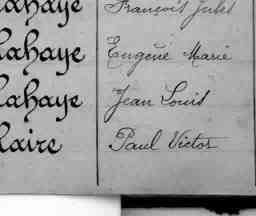 lahaye François Jules
lahaye Eugène Marie
lahaye Jean Louis
laire Paul Victor